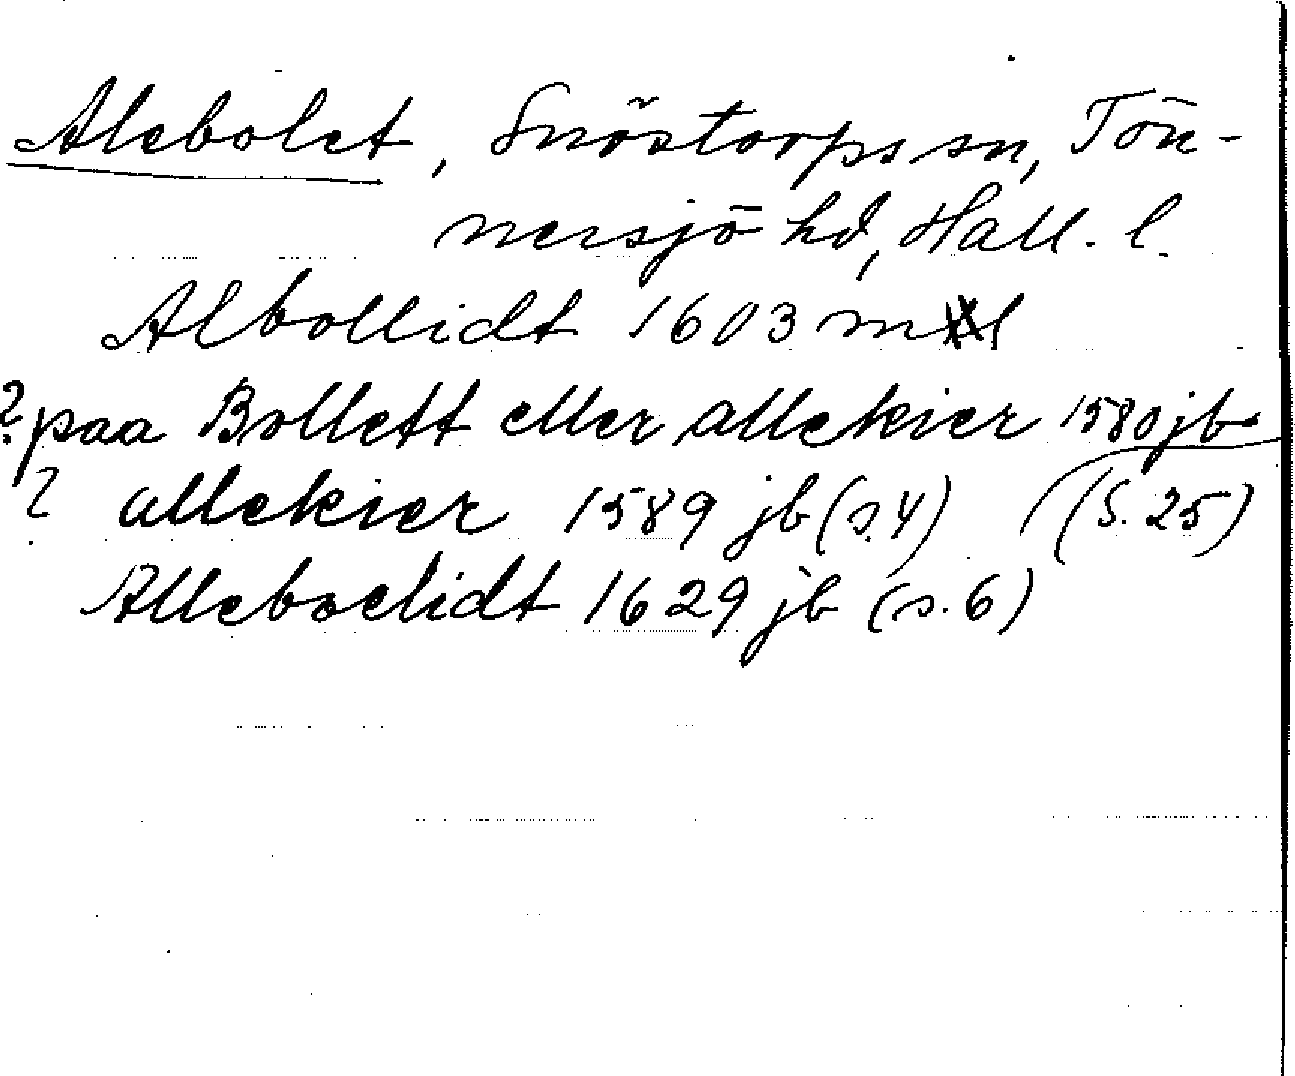 Alebolet, Snöstorps sn, Tön-
nersjö hd, Hall. l.
Albollidt 1603 ml
? paa Bollett eller allekier 1580 jb
? allekier 1589 jb (s. 4) (S. 25)
Alleboelidt 1629 jb (s. 6)